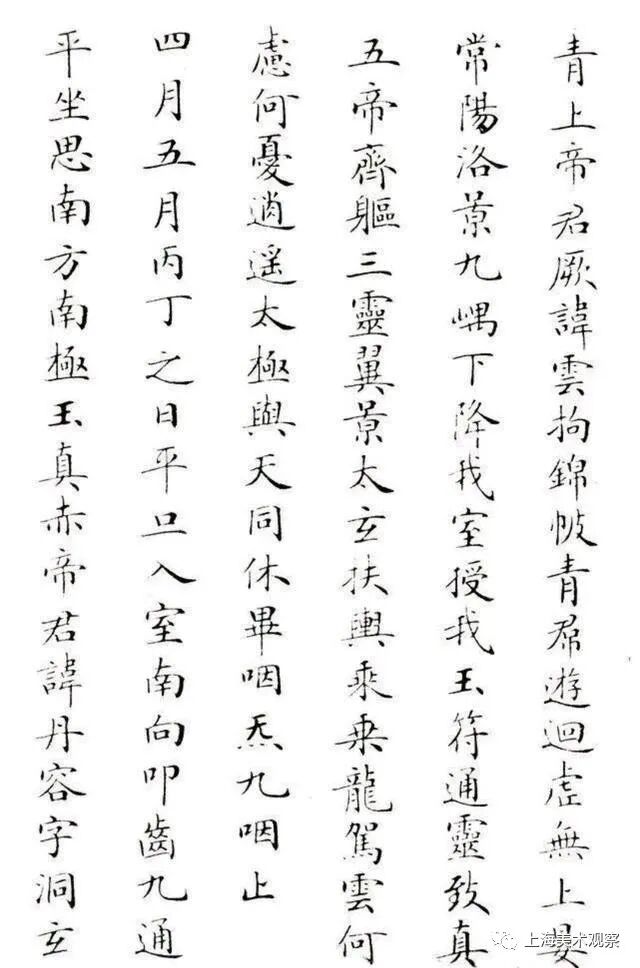 青上帝君厥諱雲拘錦帔青帬遊迴虛無上晏
常陽洛景九嵎下降我室授我玉符通靈致真
五帝齊軀三靈翼景太玄扶輿乘乗龍駕雲何
慮何憂逍遥太極與天同休畢咽炁九咽止
四月五月丙丁之日平旦入室南向叩齒九通
平坐思南方南極玉真赤帝君諱丹容字洞玄
上海美术观察